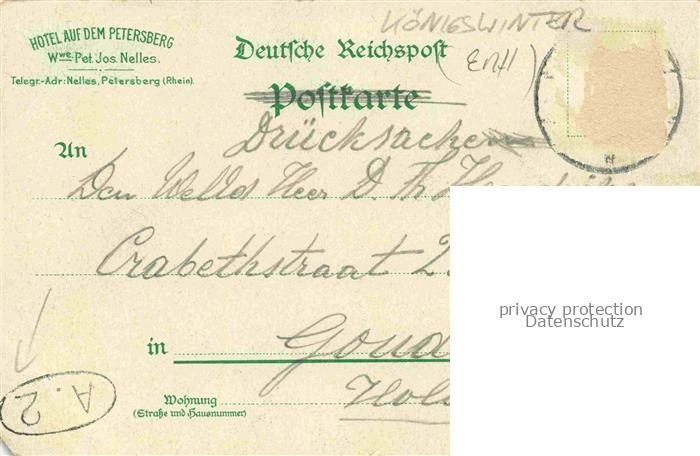 HOTEL AUF DEM PETERSBERG
Wwe. Pet. Jos. Nelles.
Telegr.-Adr: Nelles, Petersberg (Rhein).
KÖNIGSWINTER
Deutsche Reichspost
Postkarte
Drücksachen
An
Den Weled Heer D. Th.
Crabethstraat 2
in Goud
Wohnung
(Straße und Hausnummer)
Hol
A.2
privacy protection
Datenschutz